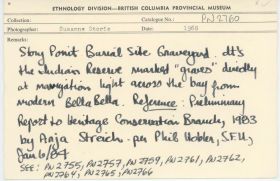 ETHNOLOGY DIVISION—BRITISH COLUMBIA PROVINCIAL MUSEUM
Collection: Catalogue No.: PN2760
Photographer: Susanne Storie Date: 1968
Remarks:
Story Point Burial Site Graveyard. It's
the Indian Reserve marked "graves" directly
at navigation light across the bay from
modern Bella Bella. Reference: Preliminary
Report to Heritage Conservation Branch, 1983
by Anja Streich - per Phil Hobler, S.F.U,
Jan 6/84
SEE: PN2755, PN2757, PN2759, PN2761, PN2762,
PN2764, PN2765, PN2766